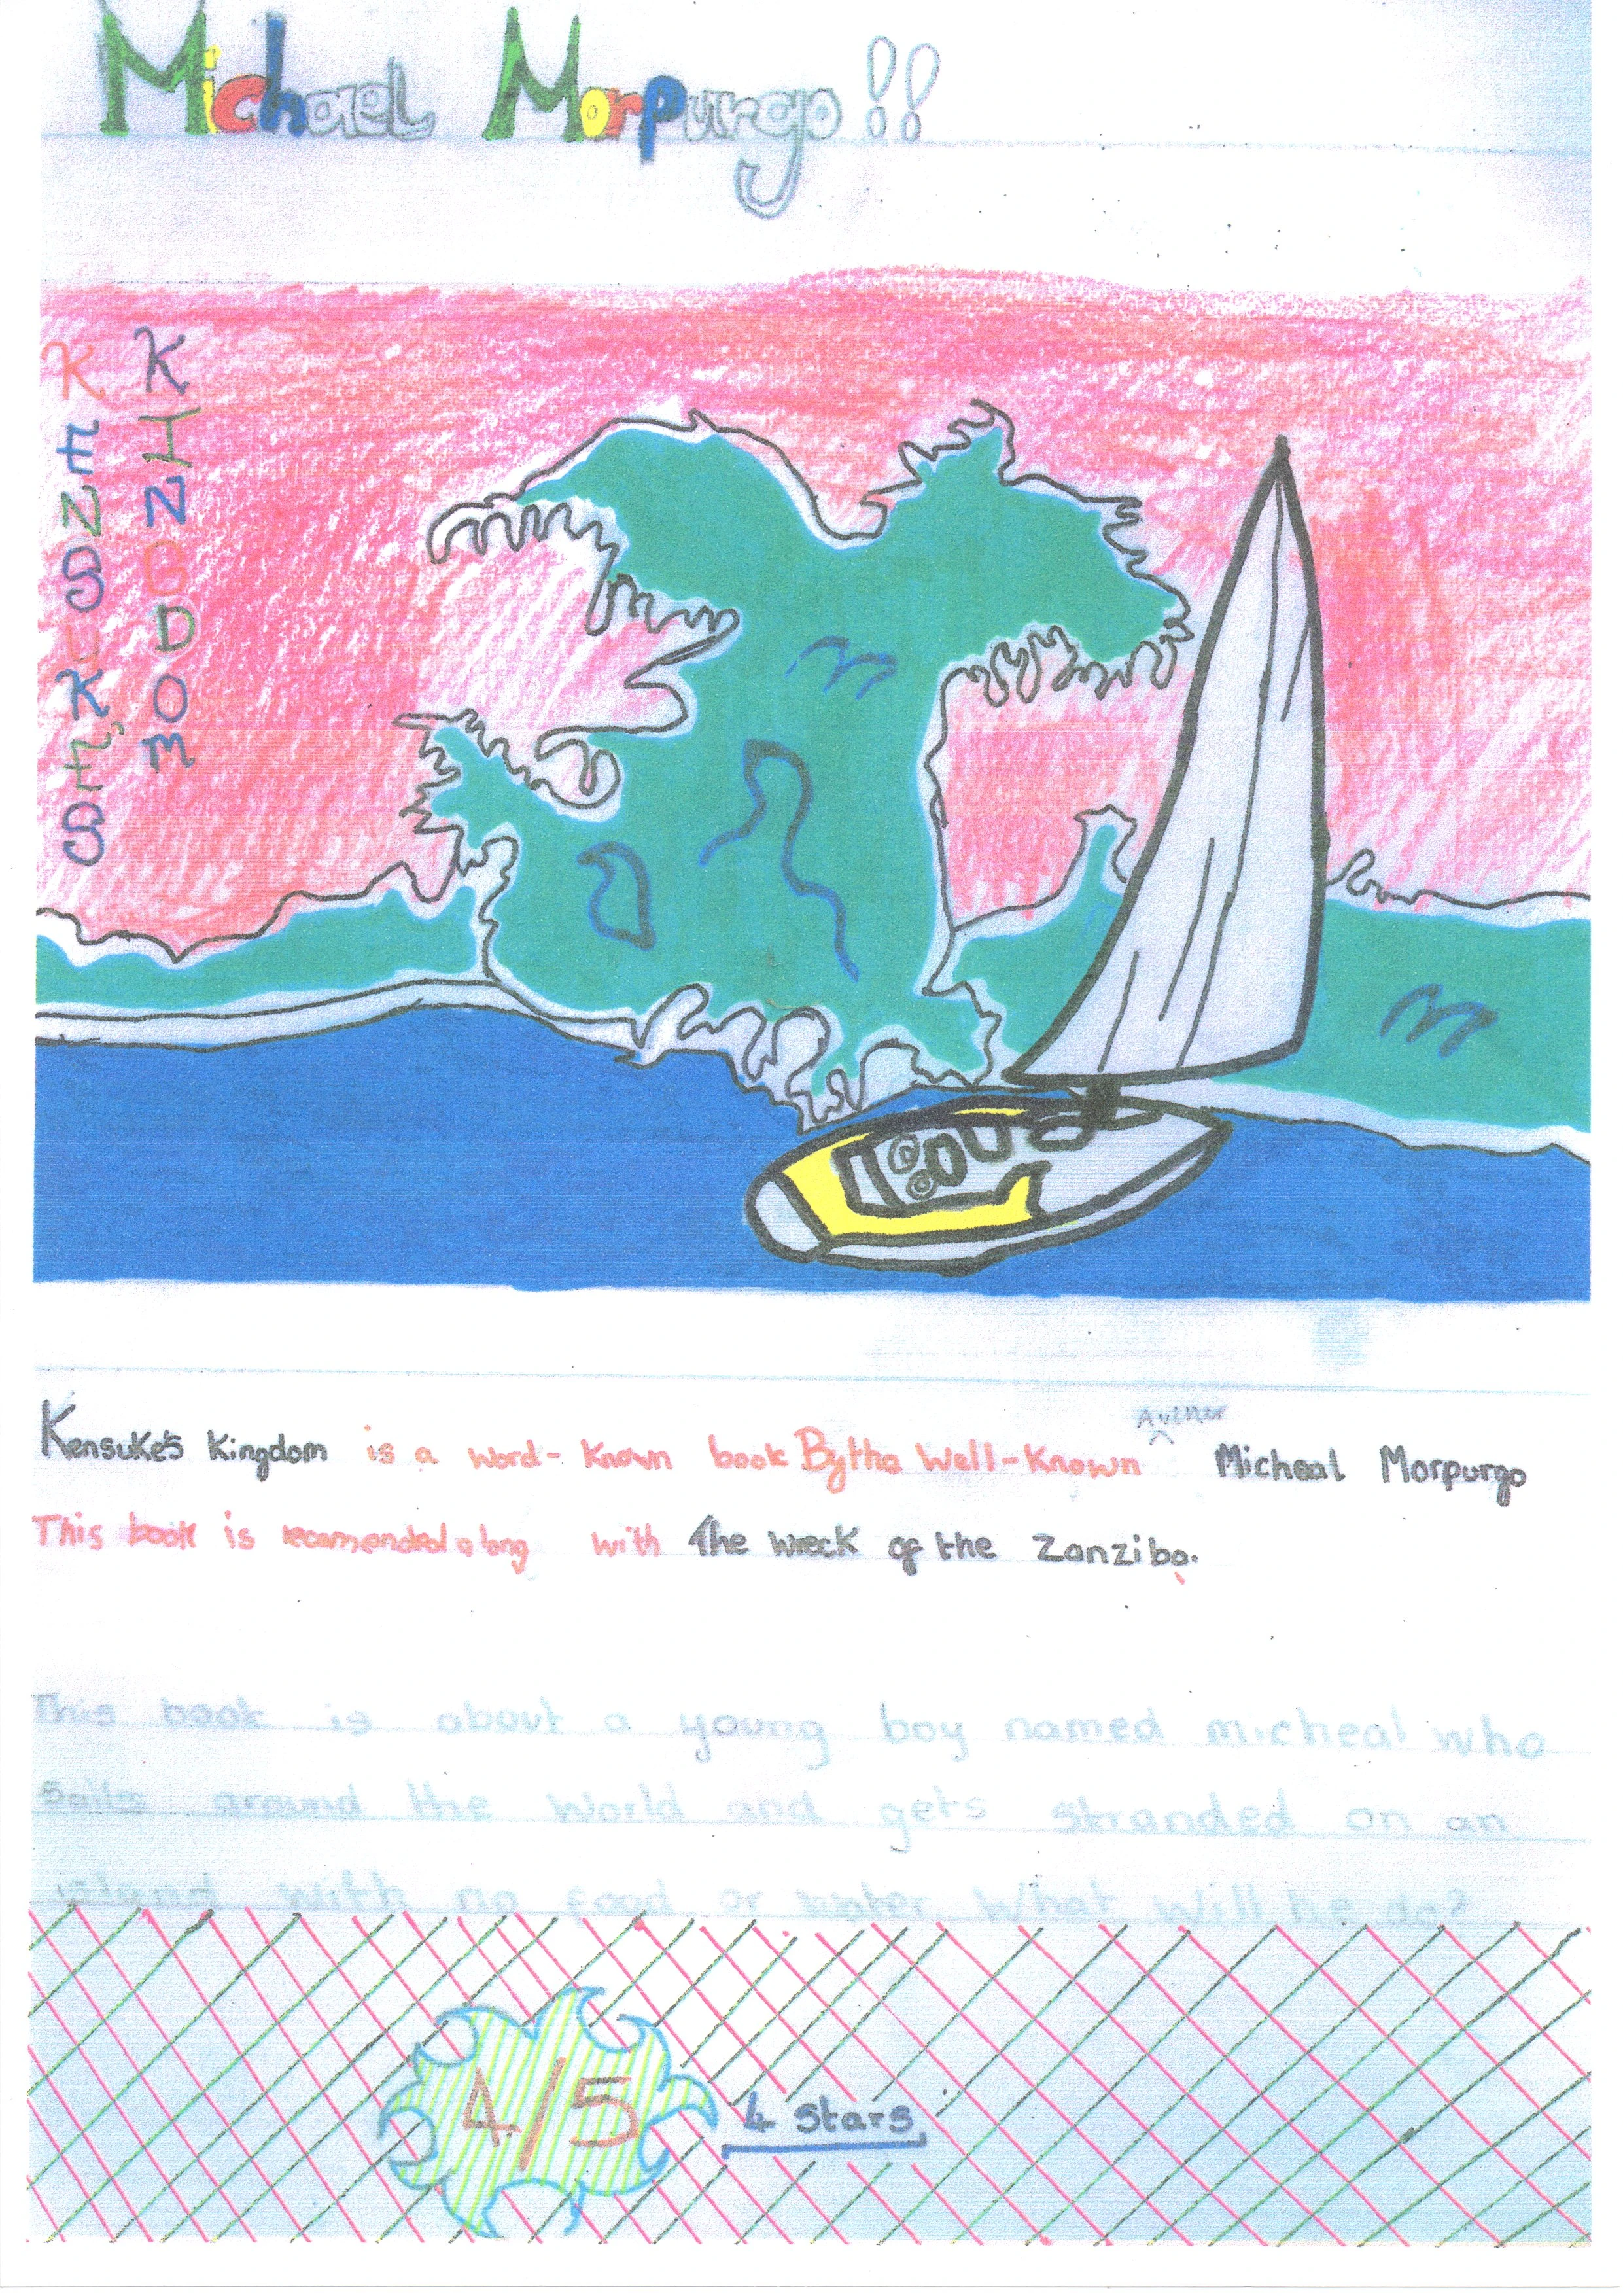 Michael Morpurgo!!
KENSUKE'S
KINGDOM
Auther
Kensuke's Kingdom is a word-known book By the Well-Known Micheal Morpurgo
This book is recomended along with The wreck of the Zanziba.
This book is about a young boy named micheal who
sails around the world and gets stranded on an
island with no food or water. What will he do?
4/5
4 stars